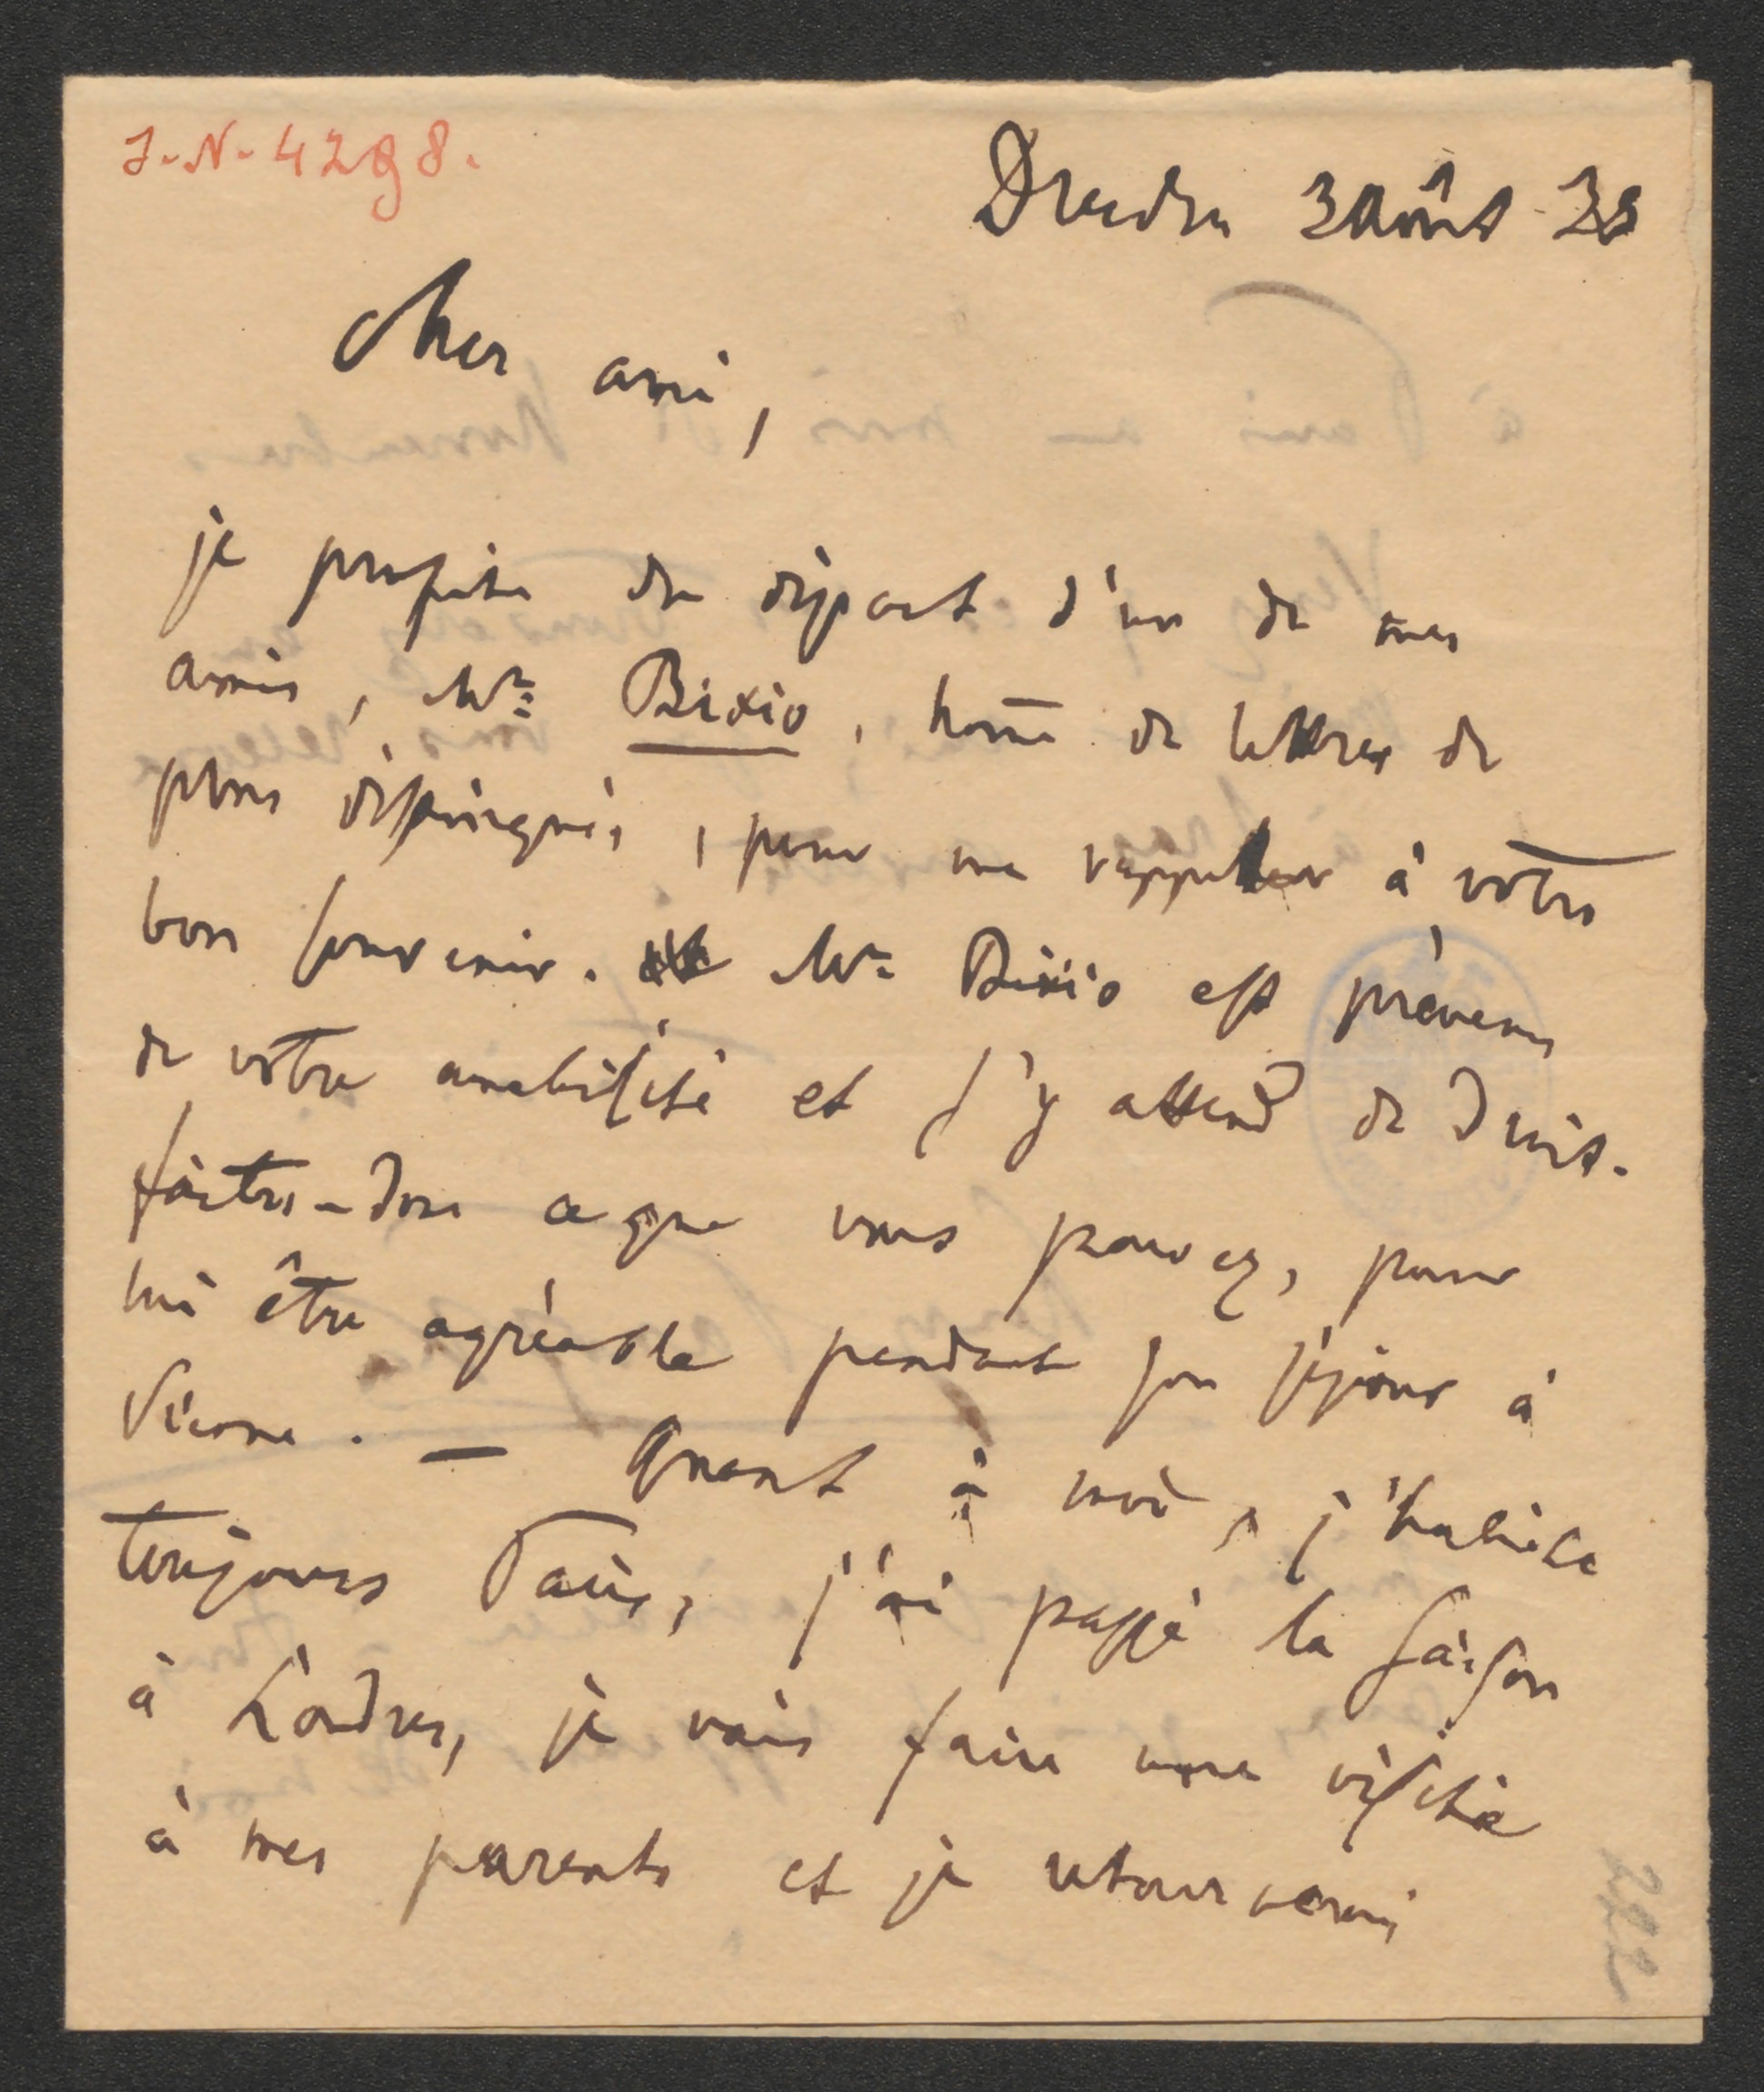 I.N. 4298.
Dresden 3 Août 38
Cher ami,
je profite du départ d'un de mes
amis, Mr: Bixio, home de lettres de
plus distingués, pour me rappeler à votre
bon souvenir. Mr: Bixio est prévenu
de votre amabilité et s'y attend de droit.
faites-donc ce que vous pouvez, pour
lui être agréable pendant son séjour à
Vienne. — Quant à moi, j'habite
toujours Paris, j'ai passé la saison
à Londres, je vais faire une visite
à mes parents et je retournerai